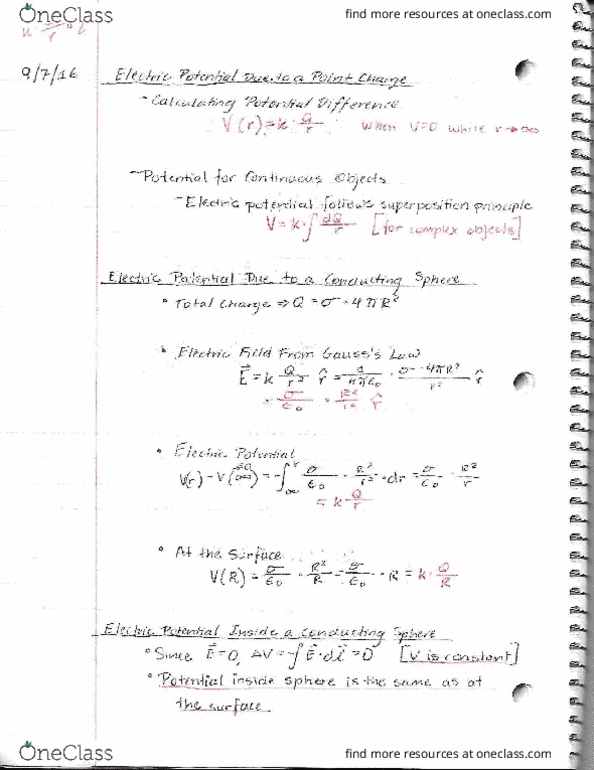 OneClass
find more resources at oneclass.com
9/7/16 Electric Potential Due to a Point Charge
- Calculating Potential Difference
V(r) = k · Q/r when V=0 while r → ∞
- Potential for Continuous Objects
- Electric potential follows superposition principle
V = k · ∫ dQ/r [for complex objects]
Electric Potential Due to a Conducting Sphere
• Total Charge ⇒ Q = σ · 4πR²
• Electric Field From Gauss's Law
E⃗ = k Q/r² r̂ = 1/4πε₀ · σ · 4πR²/r² r̂
= σ/ε₀ · R²/r² r̂
• Electric Potential
V(r) - V(∞) = -∫ σ/ε₀ · R²/r² · dr = σ/ε₀ · R²/r
= k · Q/r
• At the Surface
V(R) = σ/ε₀ · R²/R = σ/ε₀ · R = k · Q/R
Electric Potential Inside a Conducting Sphere
• Since E⃗=0, ΔV = -∫E⃗·dl⃗ = 0 [V is constant]
• Potential inside sphere is the same as at
the surface
OneClass
find more resources at oneclass.com